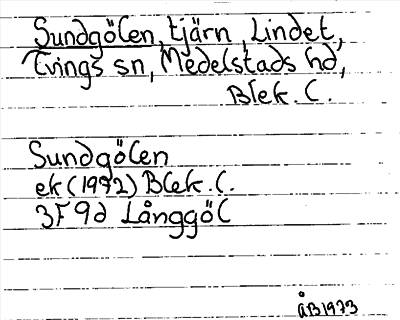 Sundgölen, tjärn, Lindet,
Tvings sn, Medelstads hd,
Blek. l.
Sundgölen
ek (1972) Blek. l.
3F 9d Långgöl
ÅB 1973